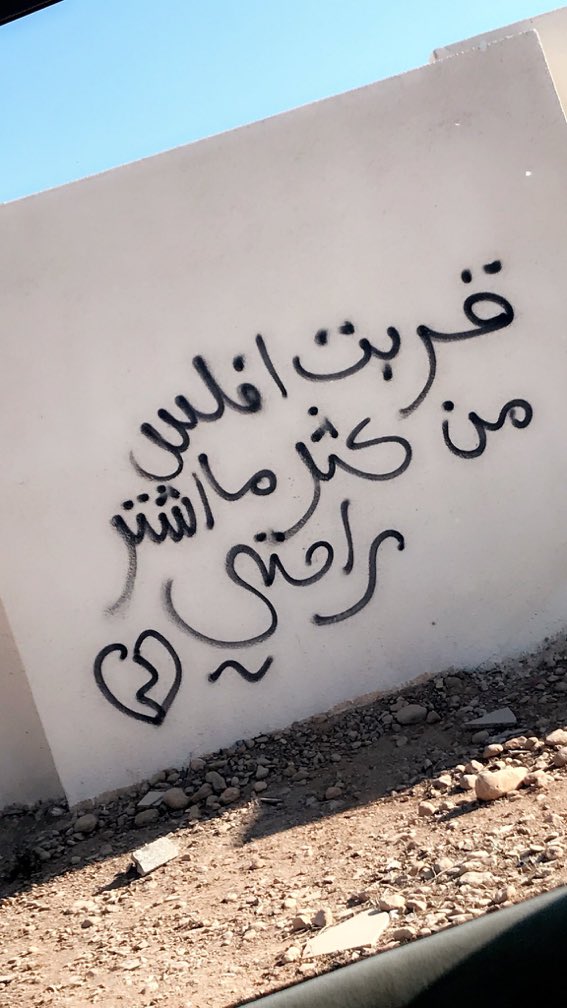 قربت افلس
من كثر ما اشتر
راحتي